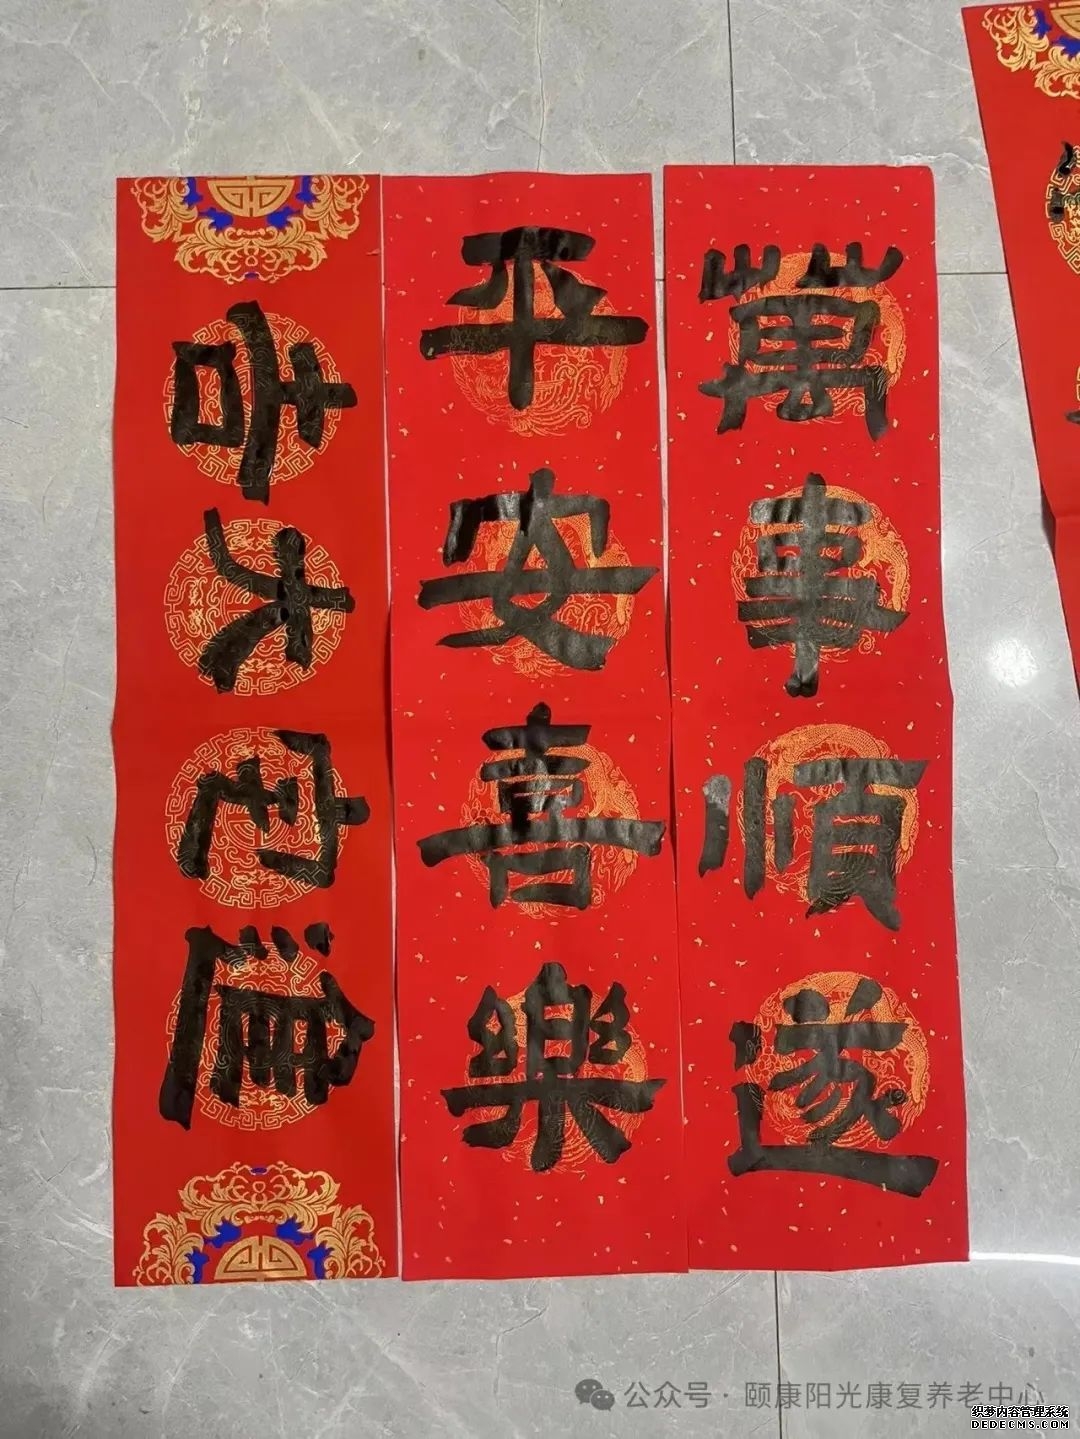 萬事順遂
平安喜樂
吉
公众号·颐康阳光康复养老中心
织梦内容管理系统
DEDECMS.COM